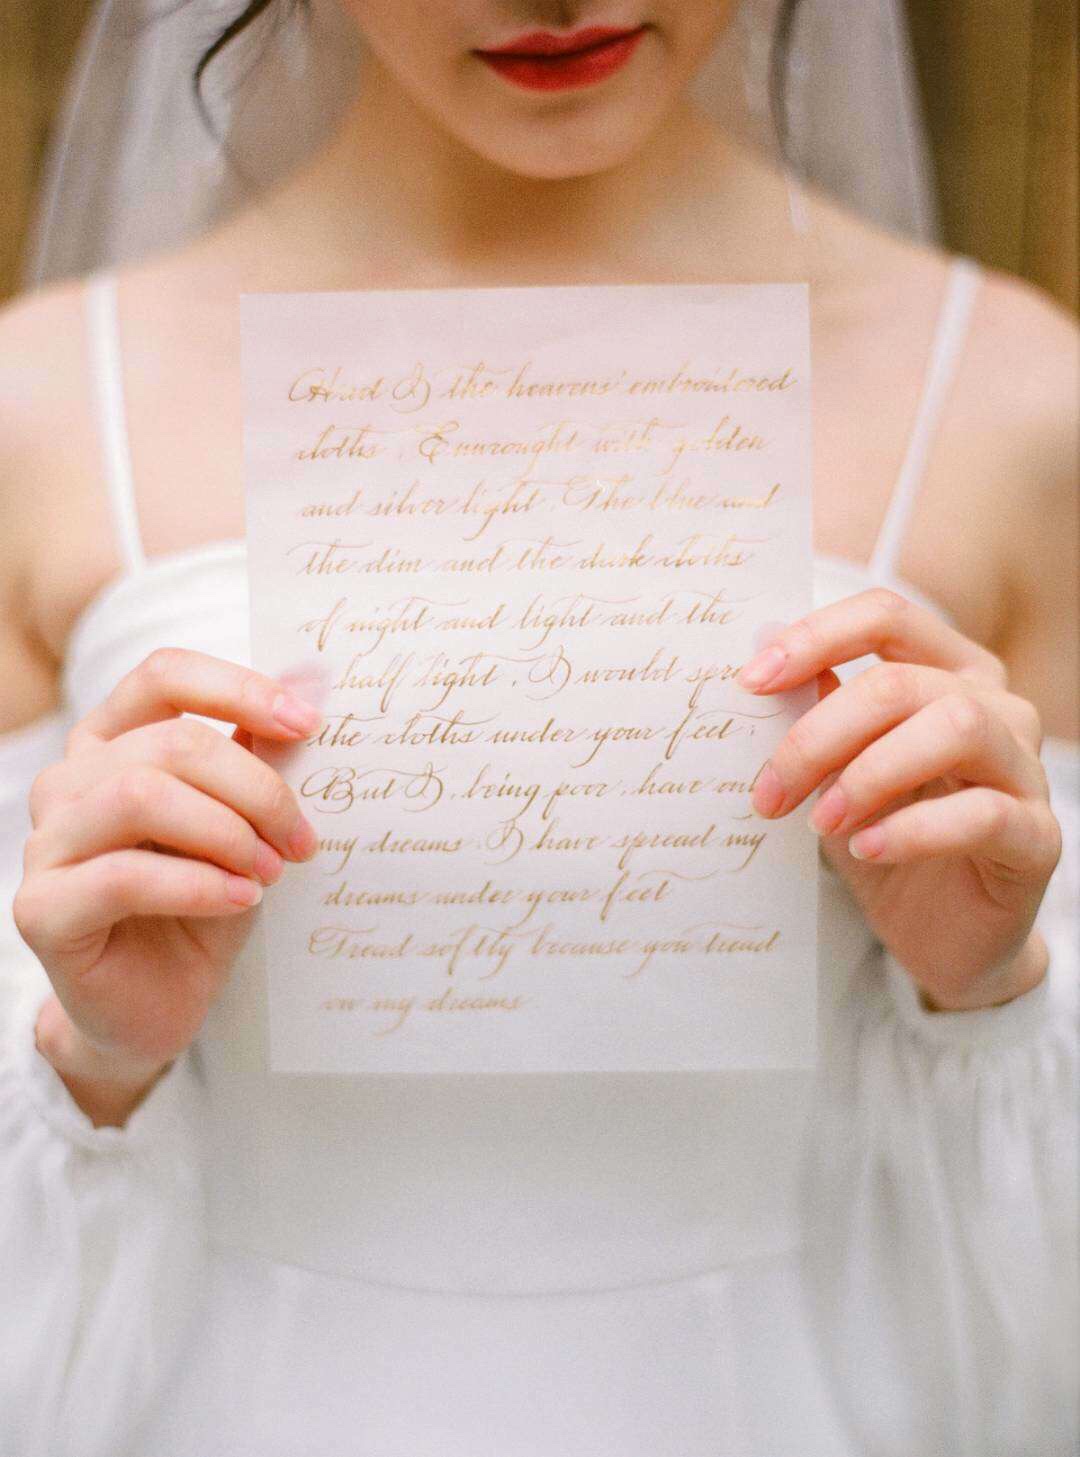 Had I the heavens' embroidered
cloths, Enwrought with golden
and silver light, The blue and
the dim and the dark cloths
of night and light and the
half light, I would spre
the cloths under your feet:
But I, being poor, have onl
my dreams; I have spread my
dreams under your feet
Tread softly because you tread
on my dreams